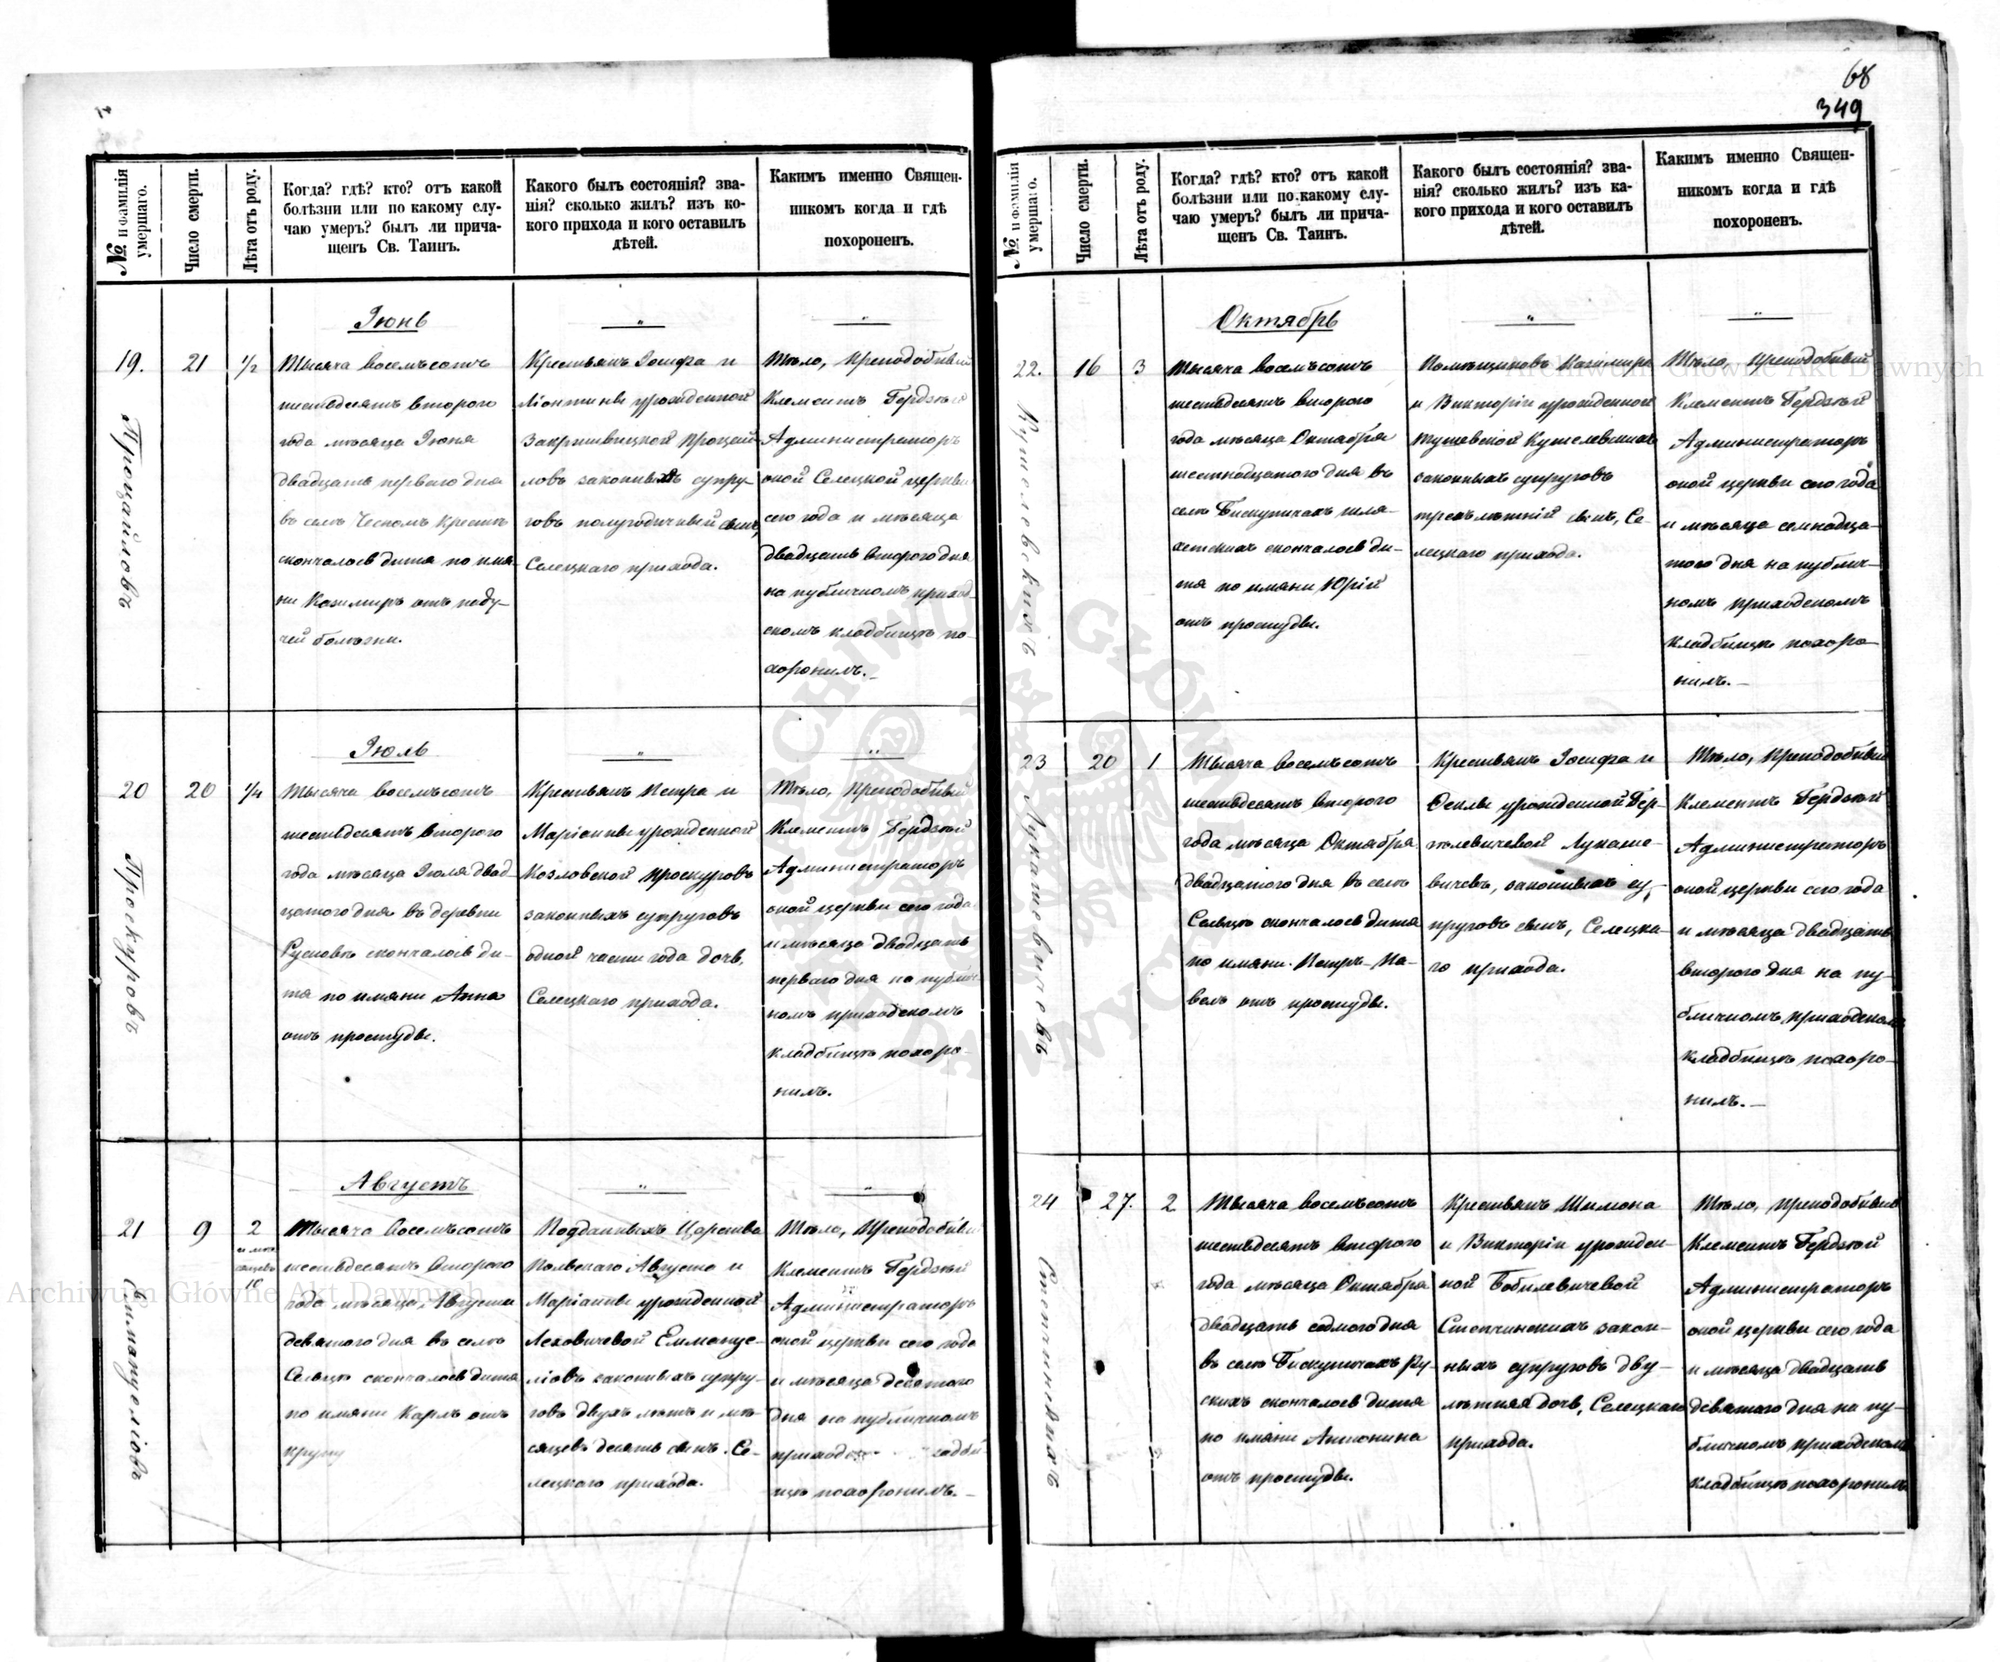 68
349
№ и фамилія умершаго.
Число смерти.
Лѣта отъ роду.
Когда? гдѣ? кто? отъ какой
болѣзни или по какому слу-
чаю умеръ? былъ ли прича-
щенъ Св. Таинъ.
Какого былъ состоянія? зва-
нія? сколько жилъ? изъ ко-
кого прихода и кого оставилъ
дѣтей.
Какимъ именно Священ-
никомъ когда и гдѣ
похороненъ.
Іюнь
19.
Процайловъ
21
1/2
Тысяча восемьсотъ
шестьдесятъ второго
года мѣсяца Іюня
двадцать перваго дня
въ селѣ Чесномъ Крестѣ
скончалось дитя по имя-
ни Казимиръ отъ паду-
чей болѣзни.
Крестьянъ Іосифа и
Ліонтины урожденной
Закршевицкой Процай-
ловъ законныхъ супру-
говъ полугодичный сынъ,
Селецкаго прихода.
Тѣло, Преподобный
Клементъ Гердзкій
Администраторъ
оной Селецкой церкви
сего года и мѣсяца
двадцать второго дня
на публичномъ приход-
скомъ кладбищѣ по-
хоронилъ.
Іюль
20
Проскуровъ
20
1/4
Тысяча восемьсотъ
шестьдесятъ второго
года мѣсяца Іюля двад-
цатого дня въ деревни
Русновъ скончалось ди-
тя по имяни Анна
отъ простуды.
Крестьянъ Петра и
Маріанны урожденной
Козловской Проскуровъ
законныхъ супруговъ
одной части года дочь,
Селецкаго прихода.
Тѣло, Преподобный
Клементъ Гердзкій
Администраторъ
оной церкви сего года
и мѣсяца двадцать
перваго дня на публич-
номъ приходскомъ
кладбищѣ похоро-
нилъ.
Августъ
21
Еммануеліовъ
9
2
и мѣ-
сяцевъ
10
Тысяча восемьсотъ
шестьдесятъ второго
года мѣсяца Августа
девятого дня въ селѣ
Сельцѣ скончалось дитя
по имяни Карлъ отъ
крупу
Подданныхъ Царства
Польского Августа и
Маріанны урожденной
Леховичевой Еммануе-
ліовъ законныхъ супру-
говъ двухъ лѣтъ и мѣ-
сяцевъ десять сынъ. Се-
лецкаго прихода.
Тѣло, Преподобный
Клементъ Гердзкій
Администраторъ
оной церкви сего года
и мѣсяца десятого
дня на публичномъ
приход
щѣ похоронилъ.
№ и фамилія умершаго.
Число смерти.
Лѣта отъ роду.
Когда? гдѣ? кто? отъ какой
болѣзни или по какому слу-
чаю умеръ? былъ ли прича-
щенъ Св. Таинъ.
Какого былъ состоянія? зва-
нія? сколько жилъ? изъ ка-
кого прихода и кого оставилъ
дѣтей.
Какимъ именно Священ-
никомъ когда и гдѣ
похороненъ.
Октябрь
22.
16
3
Тысяча восемьсотъ
шестьдесятъ второго
года мѣсяца Октября
шестнадцатого дня въ
селѣ Бискупичахъ шля-
хетскихъ скончалось ди-
тя по имяни Юрій
отъ простуды.
Помѣщиковъ Казимира
и Викторіи урожденной
законныхъ супруговъ
трехъ лѣтній сынъ, Се-
лецкаго прихода.
Тѣло, Преподобный
Клементъ Гердзкій
Администраторъ
оной церкви сего года
и мѣсяца семнадца-
того дня на публич-
номъ приходскомъ
кладбищѣ похоро-
нилъ.
23
Лукашевичевъ
20
1
Тысяча восемьсотъ
шестьдесятъ второго
года мѣсяца Октября
двадцатого дня въ селѣ
Сельцѣ скончалось дитя
по имяни Петръ-Па-
велъ отъ простуды.
Крестьянъ Іосифа и
Феклы урожденной Гер-
толевичевой Лукаше-
вичевъ, законныхъ су-
пруговъ сынъ, Селецка-
го прихода.
Тѣло, Преподобный
Клементъ Гердзкій
Администраторъ
оной церкви сего года
и мѣсяца двадцать
второго дня на пу-
бличномъ приходскомъ
кладбищѣ похоро-
нилъ.
24
Степчинскихъ
27.
2
Тысяча восемьсотъ
шестьдесятъ второго
года мѣсяца Октября
двадцать седмого дня
въ селѣ Бискупичахъ Ру-
скихъ скончалось дитя
по имяни Антонина
отъ простуды.
Крестьянъ Шимона
и Викторіи урожден-
ной Бобилевичевой
Степчинскихъ закон-
ныхъ супруговъ дву-
лѣтняя дочь, Селецкаго
прихода.
Тѣло, Преподобный
Клементъ Гердзкій
Администраторъ
оной церкви сего года
и мѣсяца двадцать
девятого дня на пу-
бличномъ приходскомъ
кладбищѣ похоронилъ
Archiwum Główne Akt Dawnych
Archiwum Główne Akt Dawnych